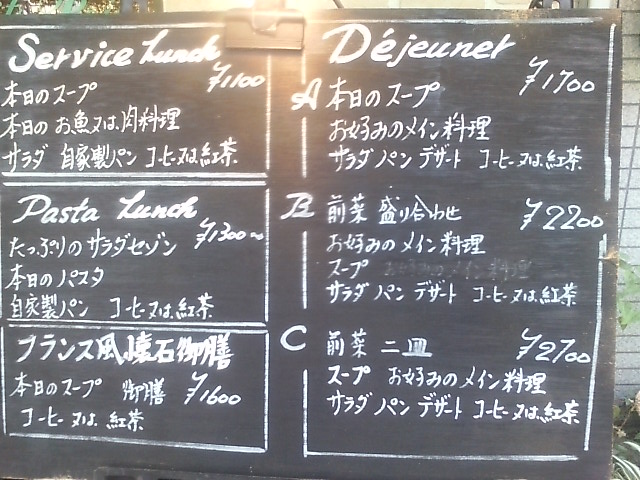 Service Lunch
¥1100
本日のスープ
本日のお魚又は肉料理
サラダ 自家製パン コーヒー又は紅茶
Pasta Lunch
¥1300〜
たっぷりのサラダセゾン
本日のパスタ
自家製パン コーヒー又は紅茶
フランス風懐石御膳
本日のスープ 御膳 ¥1600
コーヒー又は紅茶
Déjeuner
¥1700
A 本日のスープ
お好みのメイン料理
サラダ パン デザート コーヒー又は紅茶
B 前菜 盛り合わせ ¥2200
お好みのメイン料理
スープ お好みのメイン料理
サラダ パン デザート コーヒー又は紅茶
C 前菜 二皿 ¥2700
スープ お好みのメイン料理
サラダ パン デザート コーヒー又は紅茶